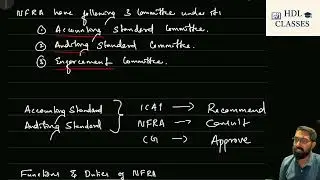 HDL CLASSES
NFRA have following 3 Committee under it:
① Accounting Standard Committee.
② Auditing Standard Committee.
③ Enforcement Committee.
Accounting Standard } ICAI → Recommend
Auditing Standard } NFRA → Consult
CG → Approve
Functions & Duties of NFRA